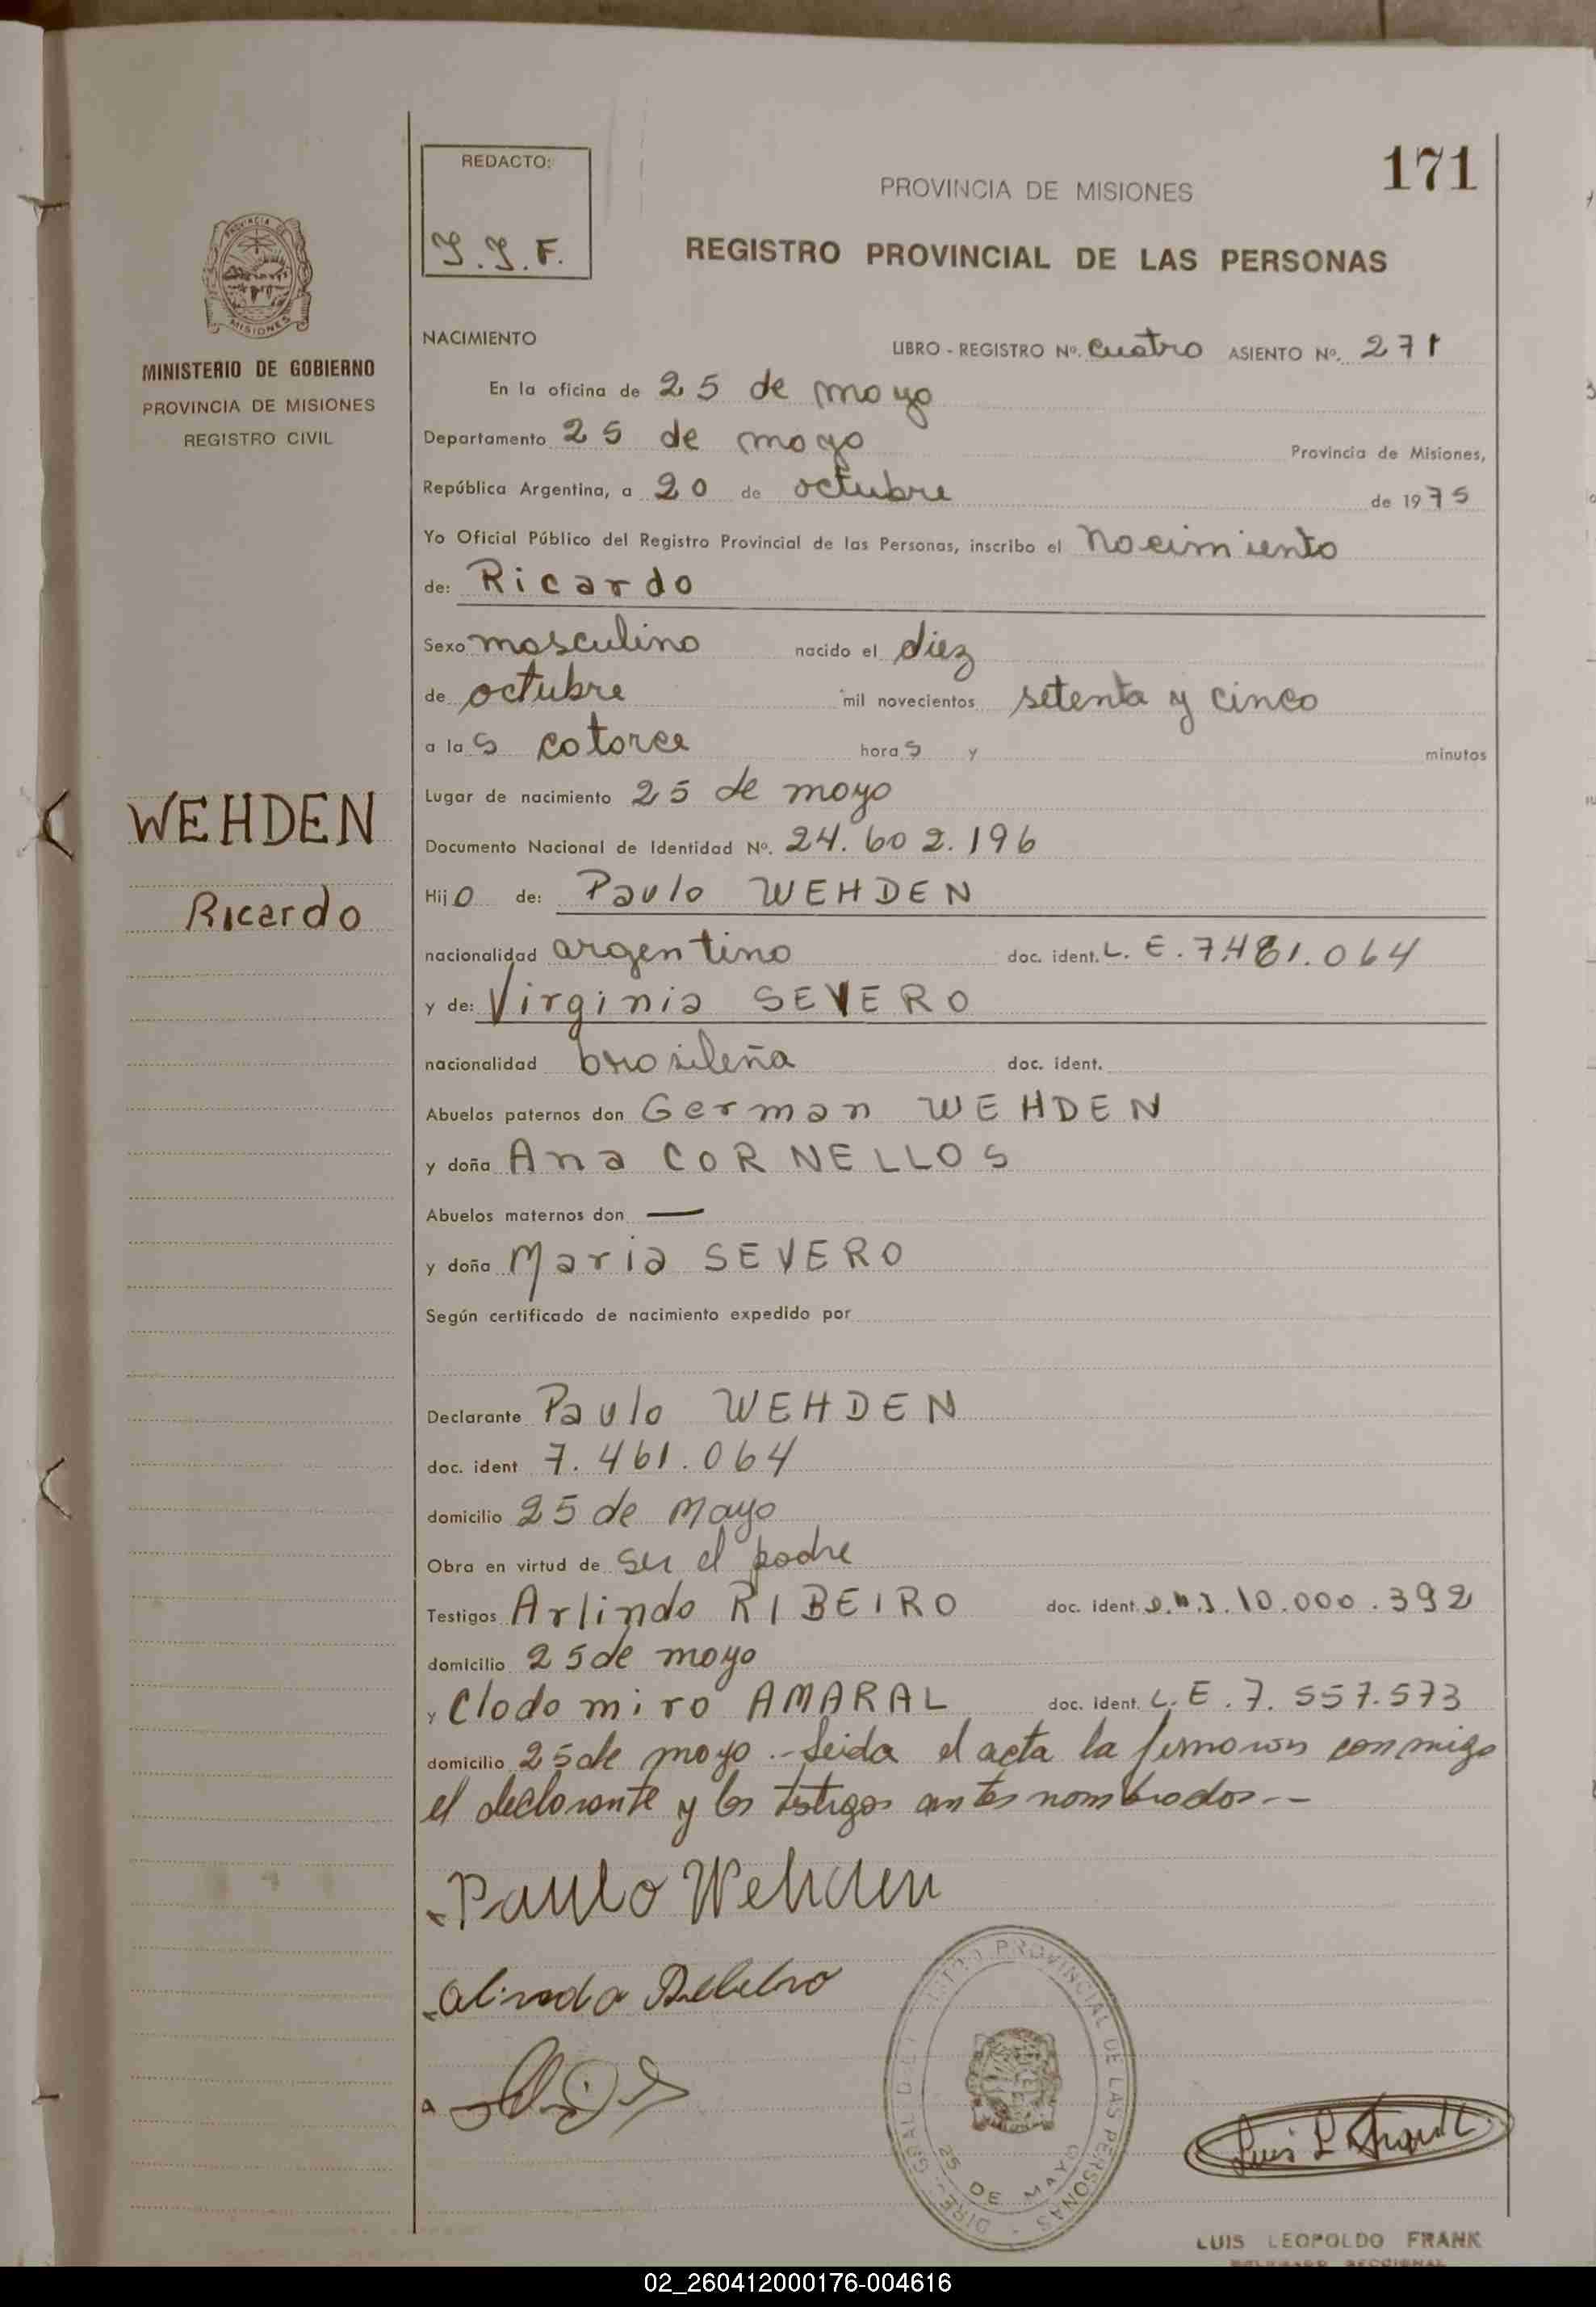 171
REDACTO:
J.J.F.
PROVINCIA DE MISIONES
REGISTRO PROVINCIAL DE LAS PERSONAS
PROVINCIA DE
MISIONES
MINISTERIO DE GOBIERNO
PROVINCIA DE MISIONES
REGISTRO CIVIL
WEHDEN
Ricardo
NACIMIENTO
LIBRO - REGISTRO Nº. cuatro ASIENTO Nº. 271
En la oficina de 25 de mayo
Departamento 25 de mayo Provincia de Misiones,
República Argentina, a 20 de octubre de 1975
Yo Oficial Público del Registro Provincial de las Personas, inscribo el nacimiento
de: Ricardo
Sexo masculino nacido el diez
de octubre mil novecientos setenta y cinco
a las catorce horas y minutos
Lugar de nacimiento 25 de mayo
Documento Nacional de Identidad Nº. 24.602.196
Hijo de: Paulo WEHDEN
nacionalidad argentino doc. ident. L. E. 7.461.064
y de: Virginia SEVERO
nacionalidad brasileña doc. ident.
Abuelos paternos don German WEHDEN
y doña Ana CORNELLOS
Abuelos maternos don —
y doña Maria SEVERO
Según certificado de nacimiento expedido por
Declarante Paulo WEHDEN
doc. ident 7.461.064
domicilio 25 de Mayo
Obra en virtud de ser el padre
Testigos Arlindo RIBEIRO doc. ident. D.N.I. 10.000.392
domicilio 25 de mayo
y Clodomiro AMARAL doc. ident. L.E. 7.557.573
domicilio 25 de mayo.- Leida el acta la firmaron conmigo
el declarante y los testigos antes nombrados.--
Paulo Wehden
DIRE. GRAL. DEL REGISTRO PROVINCIAL DE LAS PERSONAS
25 DE MAYO
Luis L. Frank
LUIS LEOPOLDO FRANK
DELEGADO SECCIONAL
02_260412000176-004616